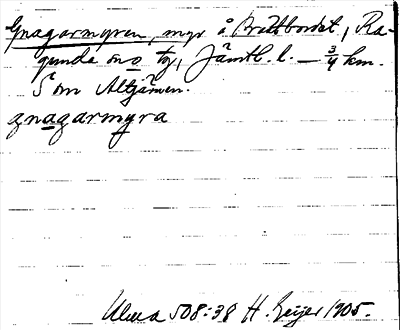 Gnagarmyren, myr å Brittbordet, Ra-
gunda sn o tg, Jämtl. l. — 3/4 km.
S om Altjärnen.
gnagarmyra
Ulma 508:38 H. Geijer 1905.